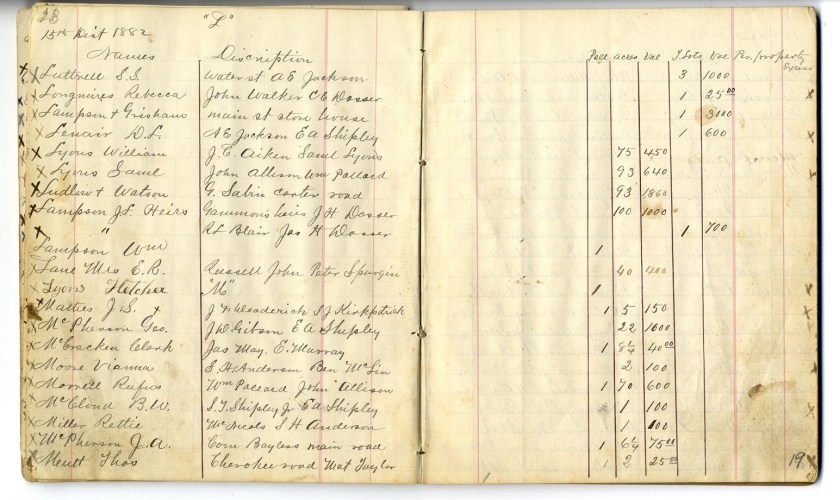 15th Dist 1882 "L"
Names Discription Pole acres Val T. Lots Val Per. Property Excess
Luttrell S.S. Water st A E Jackson 3 1000
Longmires Rebecca John Walker C E Dosser 1 25 00
Lampson & Grisham main st store house 1 3000
Lenair D.L. A E Jackson E A Shipley 1 600
Lyons William J. C. Aiken Saml Lyons 75 450
Lyons Saml John Allison Wm Pollard 93 640
Ludlow & Watson G. Sabin carter road 93 1860
Lampson J.L. Heirs Gammons heirs J H Dosser 100 1000
" R L Blair Jas H Dosser 1 700
Lampson Wm 1
Lane Mrs E.R. Russell John Peter Spurgin 40 400
Lyons Fletcher "M" 1
Mathes J. S. S J Kirkpatrick 1 5 150
McPherson Geo. J W Gibson E A Shipley 22 1600
McCracken Clark Jas May. E. Murray 1 8 1/4 40 00
Moore Vianna S. H Anderson Ben McLin 2 100
Morrell Rufus Wm Pollard John Allison 1 70 600
McCloud B.W. S. T. Shipley Jr E A Shipley 1 100
Miller Rettie McNeels S H Anderson 1 100
McPherson J.A. Corn Bayless main road 1 6 1/4 75 00
Meritt Thos Cherokee road Mat Taylor 1 2 25 00
19